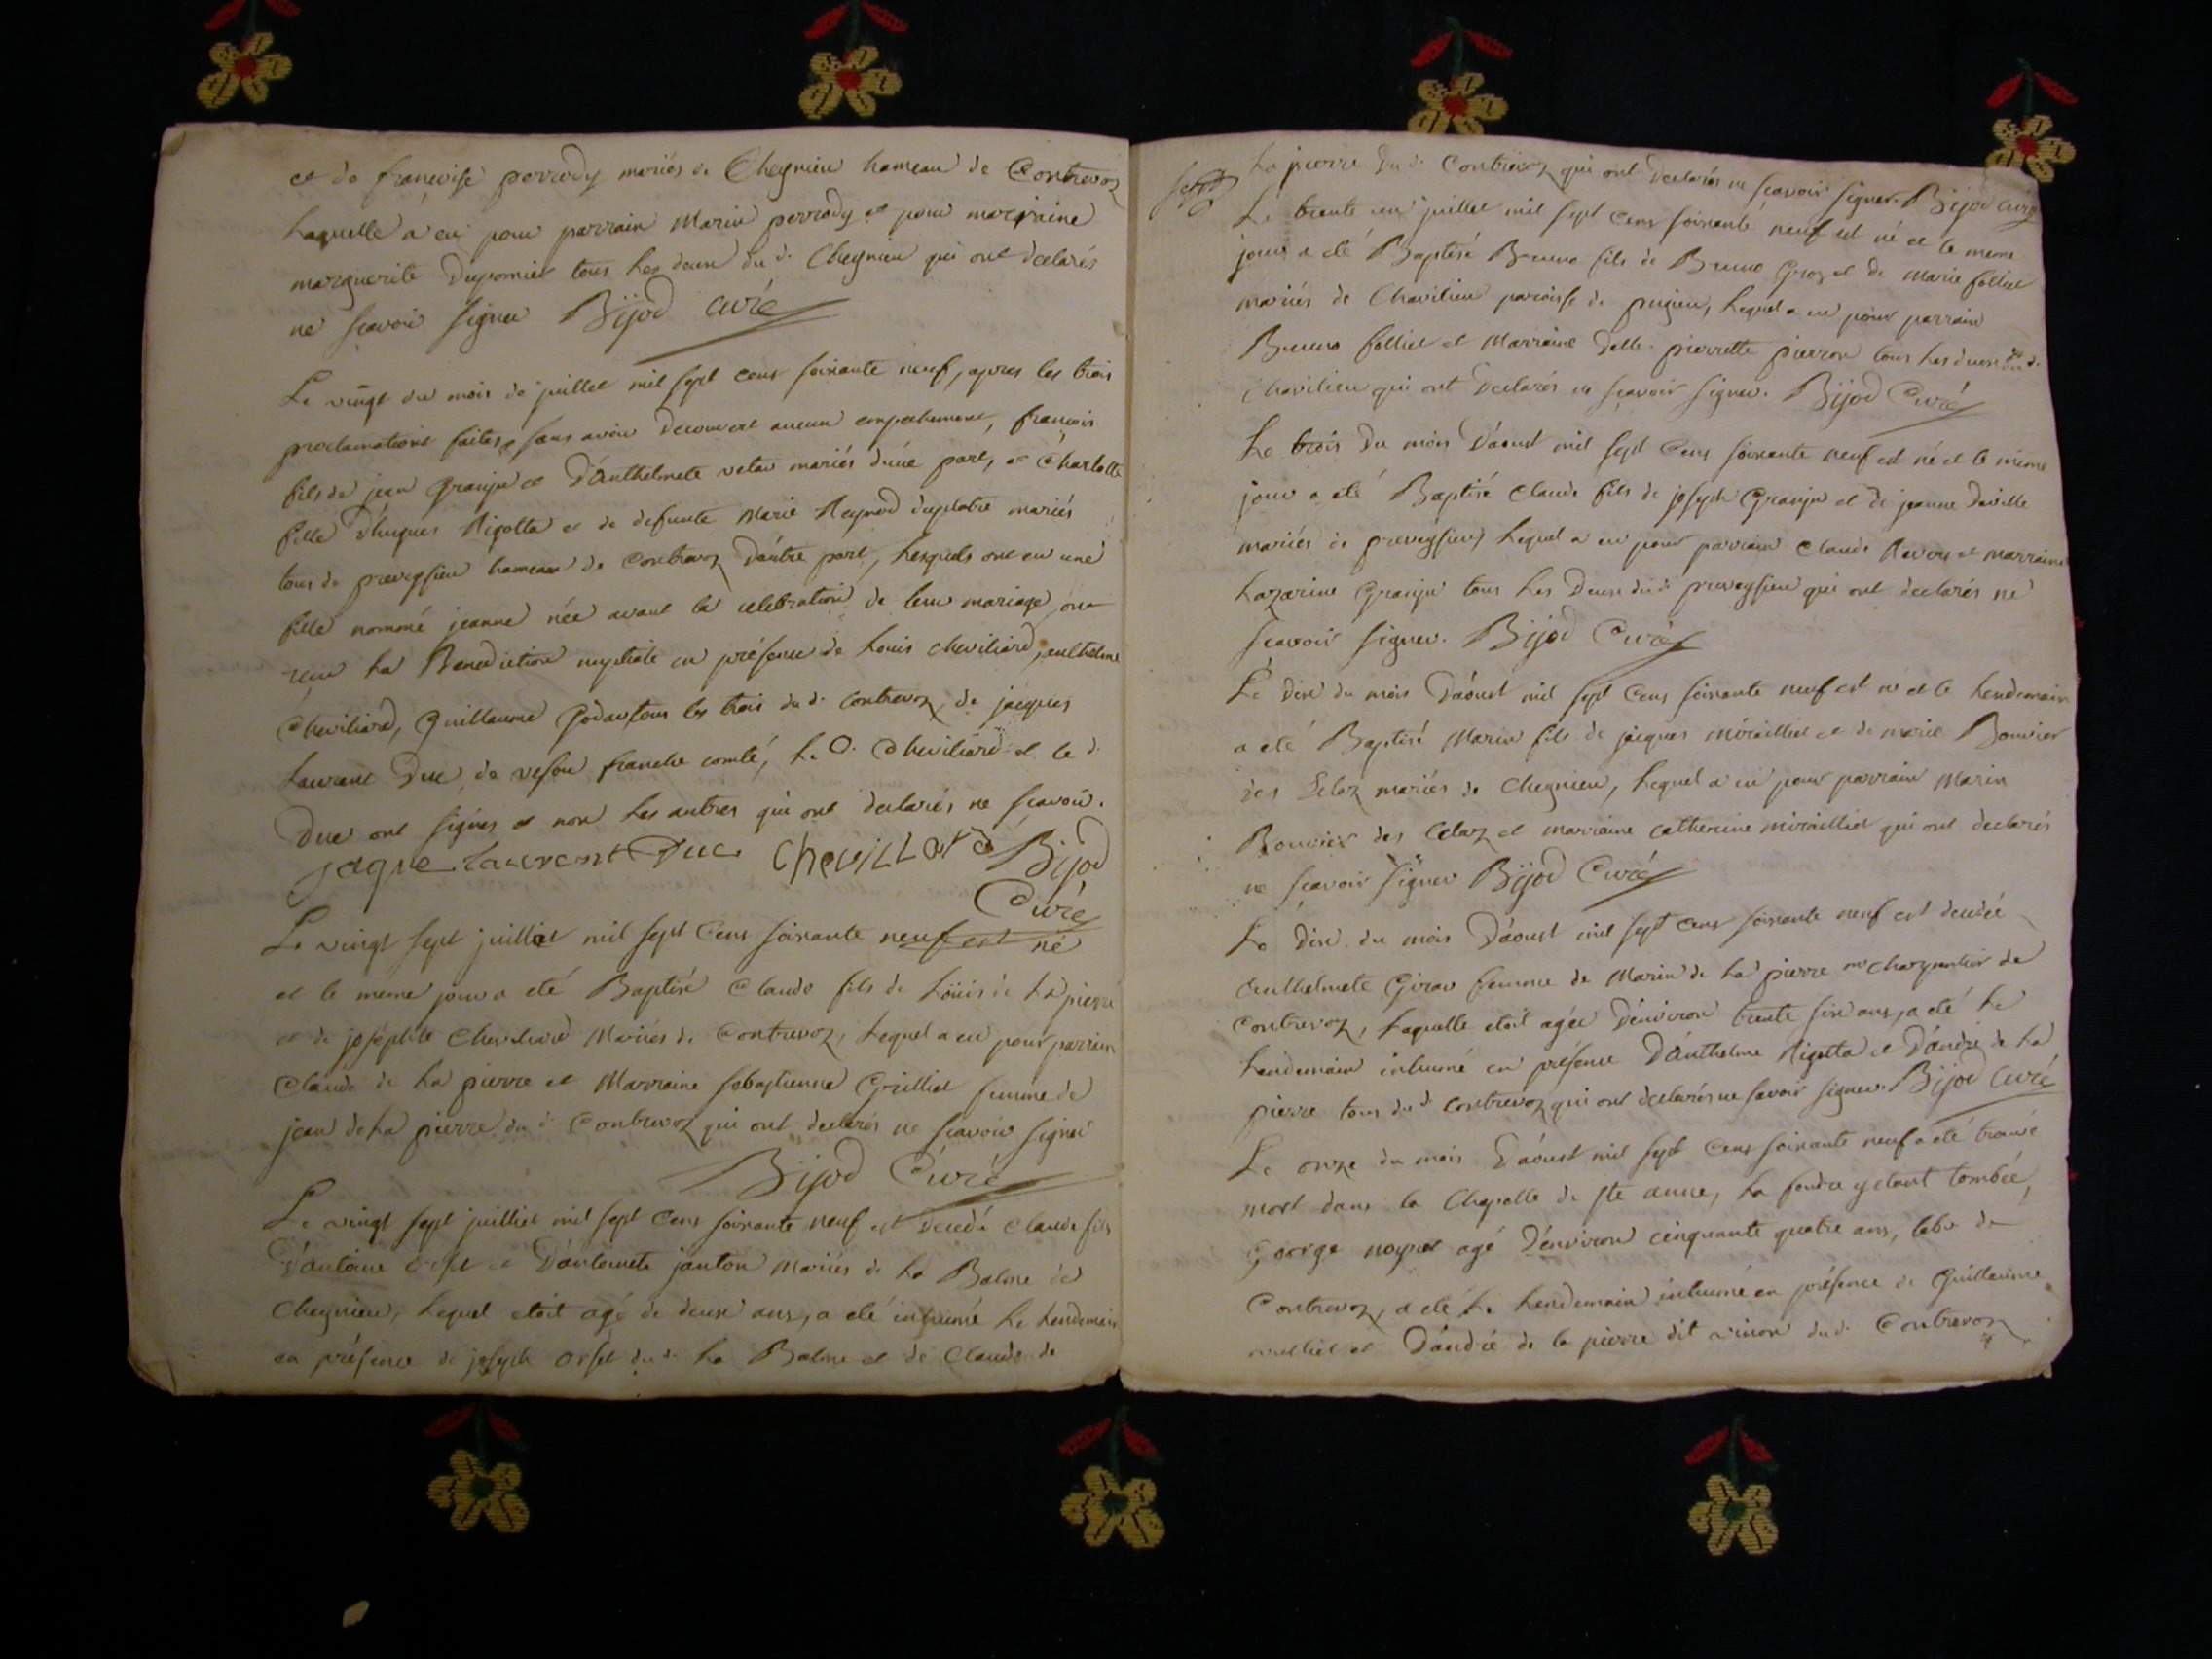 et de francoise perrody mariés de Cheynieu hameau de Contrevoz
Laquelle a eu pour parrain Marin perrody et pour marraine
marguerite Dupomier tous Les deux du d. Cheynieu qui ont declarés
ne scavoir signer Bijod curé
Le vingt du mois de juillet mil sept cens soixante neuf, apres les trois
proclamations faites, sans avoir decouvert aucun empechement, françois
fils de jean Granju et D'anthelmete vetav mariés d'une part, et Charlotte
fille d'hugues Rigotta et de defunte Marie Reynod duplatre mariés
tous de preveyssieu hameau de Contrevoz D'autre part, Lesquels ont eu une
fille nommé jeanne née avant la celebration de leur mariage, ont
reçu La Benediction nuptiale en présence de Louis cheviliard, anthelme
Cheviliard, Guillaume Godav tous les trois du d. contrevoz, de jacques
Laurent Duc de vesou franche comté, Le d. Cheviliard et le d.
Duc ont signés et non Les autres qui ont declarés ne scavoir.
jaque laurent Duc chevillard Bijod
Curé
Le vingt sept juilliet mil sept Cens soixante neuf est né
et le meme jour a eté Baptisé Claude fils de Loüis de La pierre
et de joséphte Cheviliard Mariés de Contrevoz, Lequel a eu pour parrain
Claude de La pierre et Marraine sebastienne Grilliet femme de
jean de La pierre du d. Contrevoz qui ont declarés ne scavoir signer
Bijod Curé
Le vingt sept juilliet mil sept Cens soixante neuf est decedé Claude fils
D'antoine orset et D'antoinete janton Mariés de La Balme de
Cheynieu, Lequel etoit agé de deux ans, a eté inhumé Le Lendemain
en présence de joseph orset du d. La Balme et de Claude de
La pierre du d. Contrevoz qui ont declarés ne scavoir signer. Bijod curé
Le trente un juillet mil sept Cens soixante neuf est né et le meme
jour a eté Baptisé Bruno fils de Bruno Groz et de Marie folliet
mariés de Chavilieu paroisse de pugieu, Lequel a eu pour parrain
Bruno folliet et Marraine Delle. pierrette pierron tous Les deux du d.
Chavilieu qui ont declarés ne scavoir signer. Bijod Curé
Le trois du mois D'aoust mil sept Cens soixante neuf est né et le meme
jour a eté Baptisé Claude fils de joseph Granju et de jeanne Deville
mariés de preveyssieu, Lequel a eu pour parrain Claude Ravou et marraine
Lazarine Granju tous Les Deux du d. preveyssieu qui ont declarés ne
scavoir signer. Bijod Curé
Le dix du mois D'aoust mil sept Cens soixante neuf est né et le Lendemain
a eté Baptisé Marin fils de jacques miraillet et de marie Bouvier
des Celaz mariés de Cheynieu, Lequel a eu pour parrain Marin
Bouvier des Celaz et marraine catherine miraillet qui ont declarés
ne scavoir signer Bijod Curé
Le dix du mois D'aoust mil sept cens soixante neuf est decedée
Anthelmete Girav femme de Marin de La pierre m charpentier de
Contrevoz, Laquelle etoit agée D'environ trente six ans, a eté Le
Lendemain inhumé en présence D'anthelme Rigotta et D'andré de La
pierre tous du d. contrevoz qui ont declarés ne savoir signer. Bijod Curé
Le onze du mois D'aoust mil sept Cens soixante neuf a eté trouvé
mort dans la Chapelle de ste anne, La foudre y etant tombée,
George noyret agé D'environ cinquante quatre ans, de
Contrevoz, a eté Le Lendemain inhumé en présence de Guillaume
et D'andré de la pierre dit du d. Contrevoz